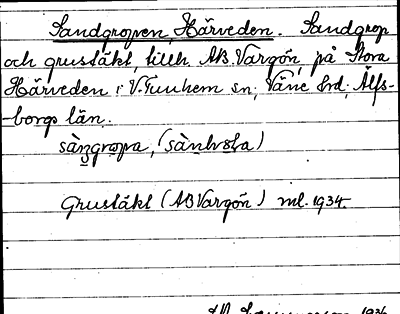 Sandgropen, Härveden. Sandgrop
och grustäkt, tillh. AB. Vargön, på Stora
Härveden i V. Tunhem sn; Väne hd; Älfs-
-borgs län.
sàngropa, (sànhola)
Grustäkt (AB Vargön) ml. 1934.
1934